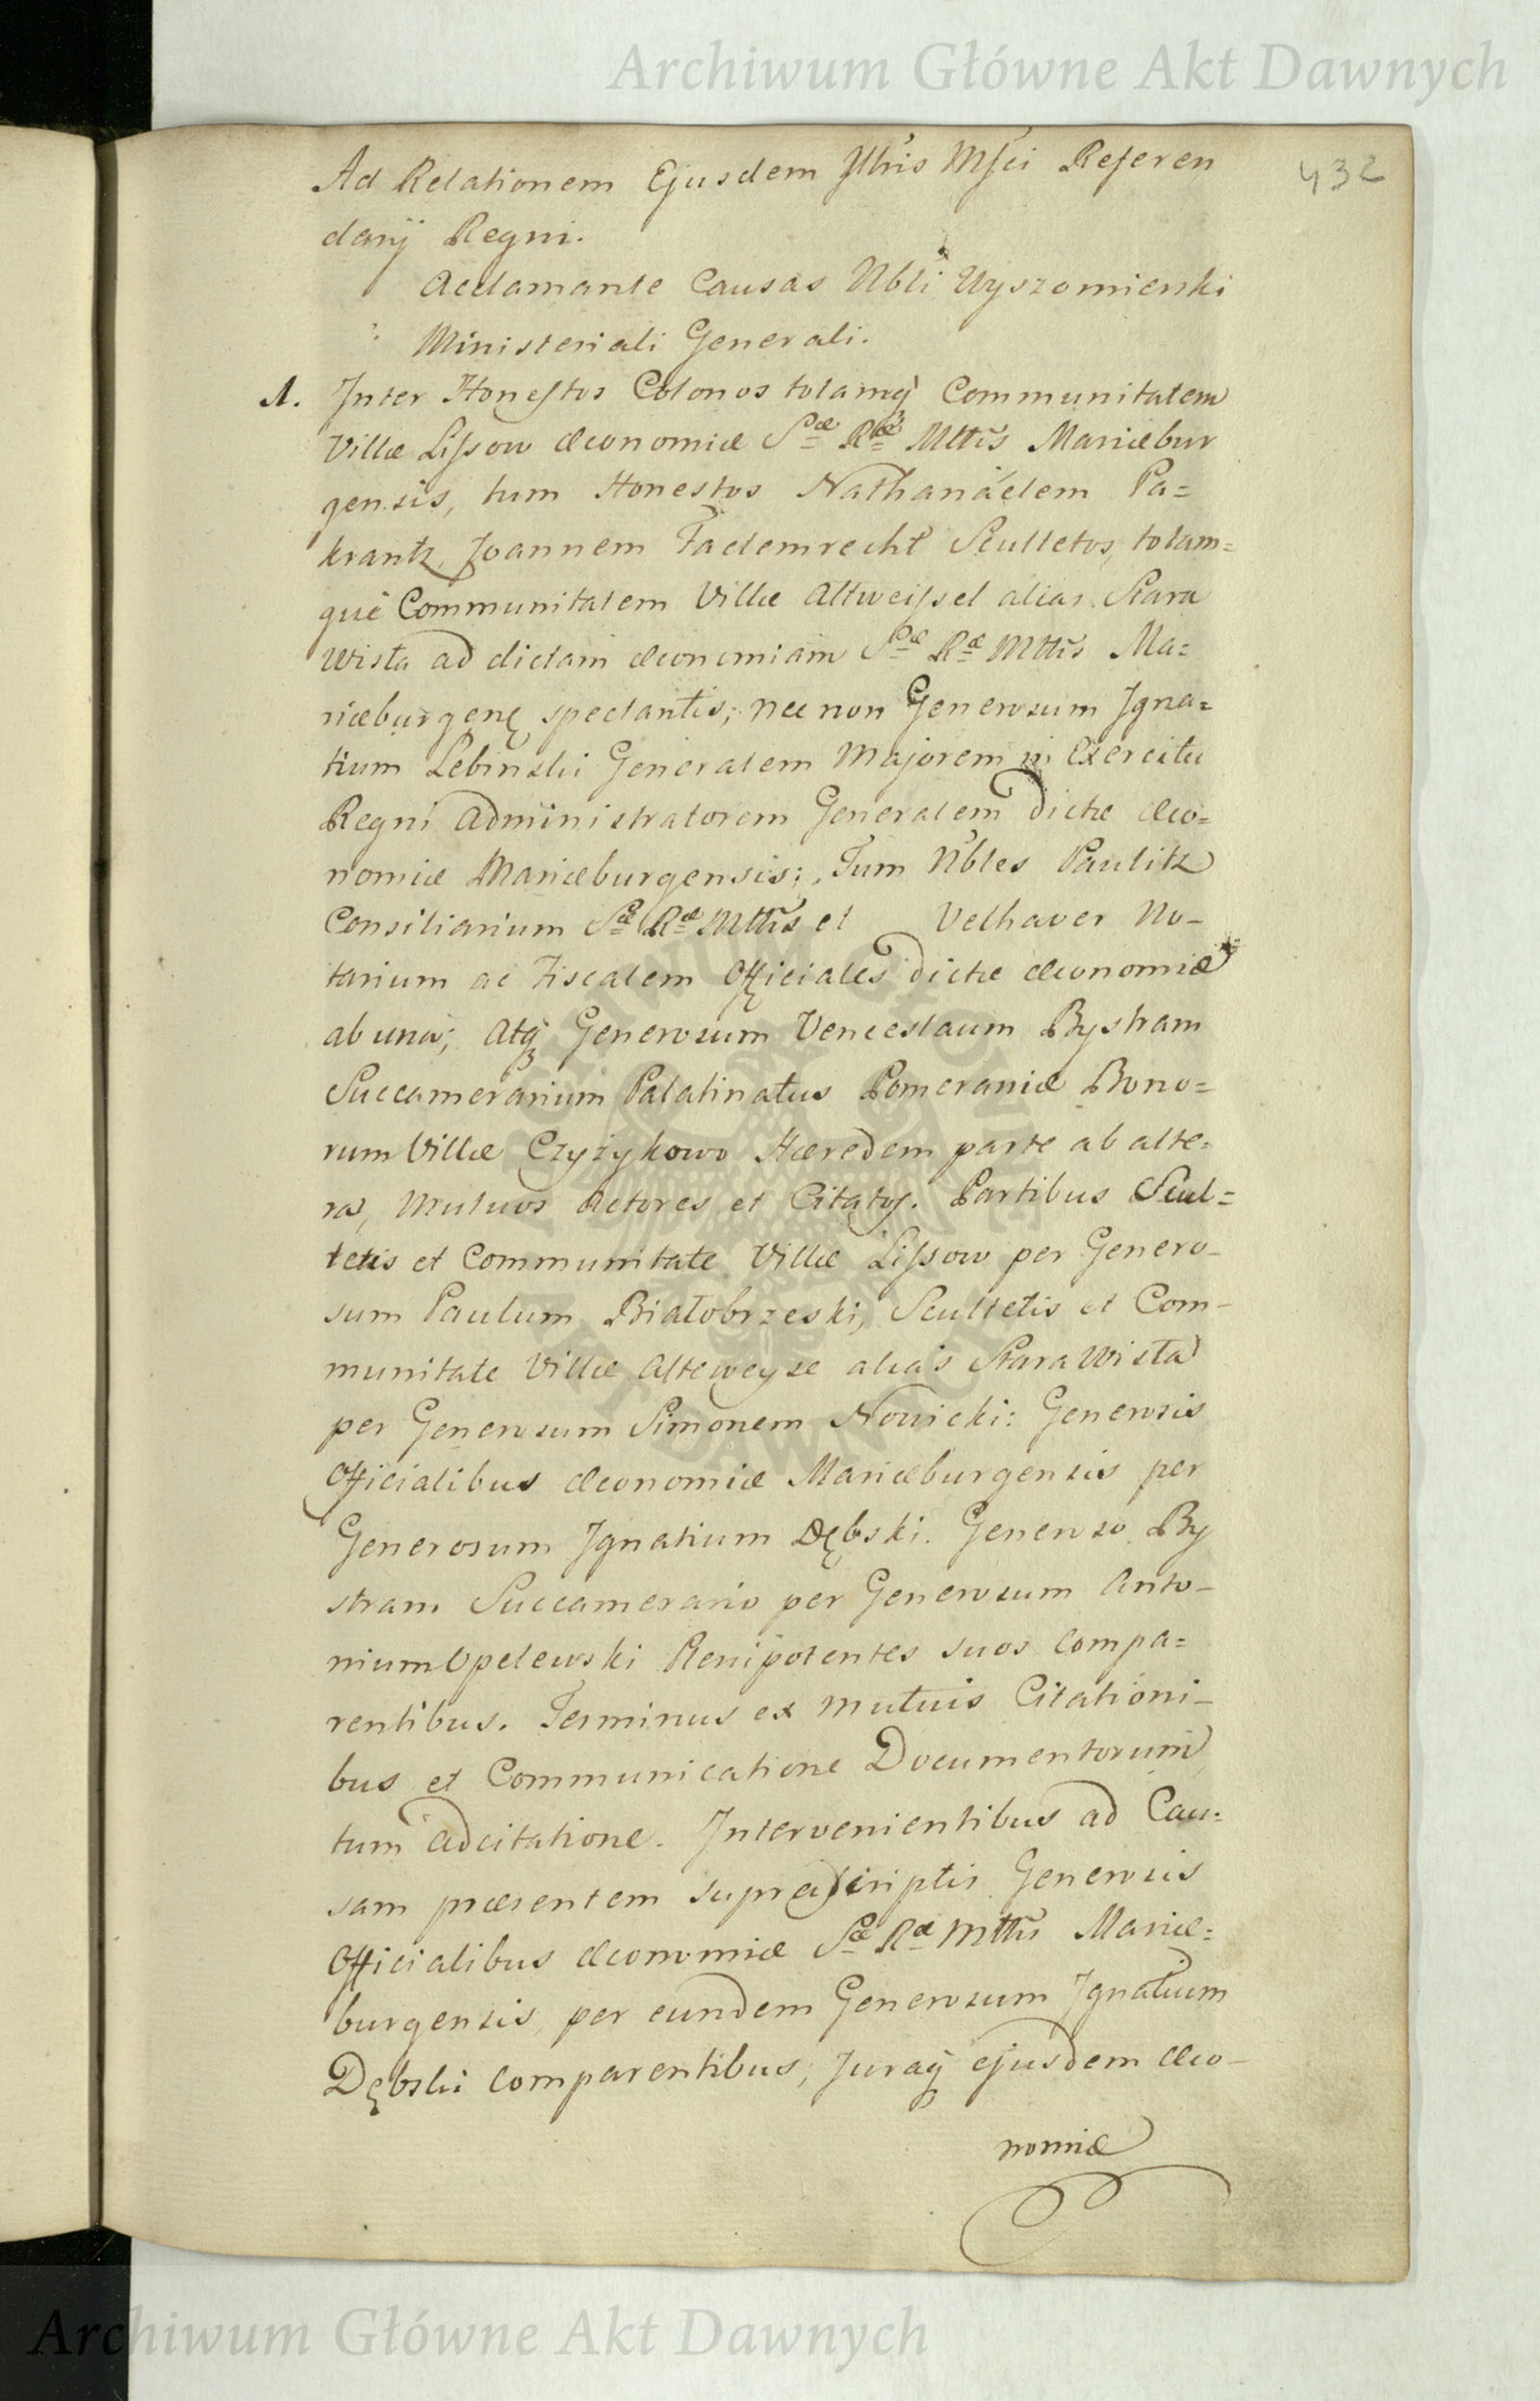 Archiwum Główne Akt Dawnych
432
Ad Relationem Ejusdem Jllris Msci Referen
darij Regni.
Acclamante Causas Nbli Wyszomienski
Ministeriali Generali.
1. Inter Honestos Colonos totamq̃ Communitatem
Villæ Lissow Œconomiæ Sæ Ræ Mttis Mariæbur
gensis, tum Honestos Nathanáelem Pa=
krantz, Joannem Fademrecht Scultetos, totam=
que Communitatem Villæ Altweissel alias Stara
Wisła ad dictam œconomiam Sæ Ræ Mttis Ma=
riæburgenę spectantis; nec non Generosum Jgna=
tium Lebinski Generalem Majorem in Exercitu
Regni Administratorem Generalem dictæ Œco=
nomiæ Mariæburgensis; Tum Nbles Paulitz
Consiliarium Sæ Ræ Mttis et Velhaver No-
tarium ac Fiscalem Officiales dictæ œconomiæ
ab una; Atq̃ Generosum Venceslaum Bystram
Succamerarium Palatinatus Pomeraniæ Bono=
rum Villæ Czyżykowo Hæredem parte ab alte=
ra, Mutuos Actores et Citatos. Partibus Scul=
tetis et Communitate Villæ Lissow per Genero-
sum Paulum Białobrzeski, Scultetis et Com-
munitate Villæ Alteweyse alias Stara Wisła
per Generosum Simonem Nowicki: Generosis
Officialibus Œconomiæ Mariæburgensis per
Generosum Jgnatium Dębski. Generoso By
stram Succamerario per Generosum Anto-
nium Opelewski Plenipotentes suos Compa=
rentibus. Terminus ex mutuis Citationi-
bus et Communicatione Documentorum
tum adcitatione. Intervenientibus ad Cau=
sam præsentem suprascriptis Generosis
Officialibus Œconomiæ Sæ Ræ Mttis Mariæ=
burgensis, per eundem Generosum Jgnatium
Dębski Comparentibus; Juraq̃ ejusdem Œco-
nomiæ
Archiwum Główne Akt Dawnych